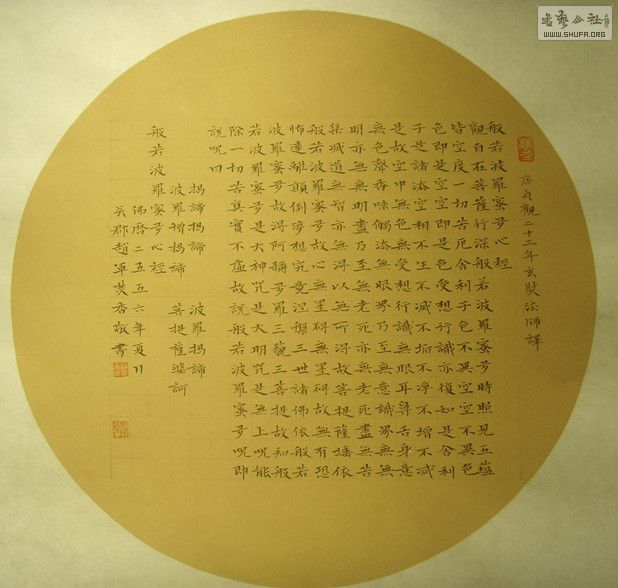 書藝公社
WWW.SHUFA.ORG
唐貞觀二十三年玄奘法師譯
般若波羅蜜多心經
觀自在菩薩行深般若波羅蜜多時照見五蘊
皆空度一切苦厄舍利子色不異空空不異色
色即是空空即是色受想行識亦復如是舍利
子是諸法空相不生不滅不垢不淨不增不減
是故空中無色無受想行識無眼耳鼻舌身意
無色聲香味觸法無眼界乃至無意識界無無
明亦無無明盡乃至無老死亦無老死盡無苦
集滅道無智亦無得以無所得故菩提薩埵依
般若波羅蜜多故心無罣碍無罣碍故無有恐
怖遠離顛倒夢想究竟涅槃三世諸佛依般若
波羅蜜多故得阿耨多羅三藐三菩提故知般
若波羅蜜多是大神咒是大明咒是無上呪能
除一切苦真實不虛故說般若波羅蜜多呪即
說呪曰
揭諦揭諦 波羅揭諦
波羅增揭諦 菩提薩婆訶
般若波羅蜜多心經
佛曆二五五六年夏月
吳郡趙軍英香敬書